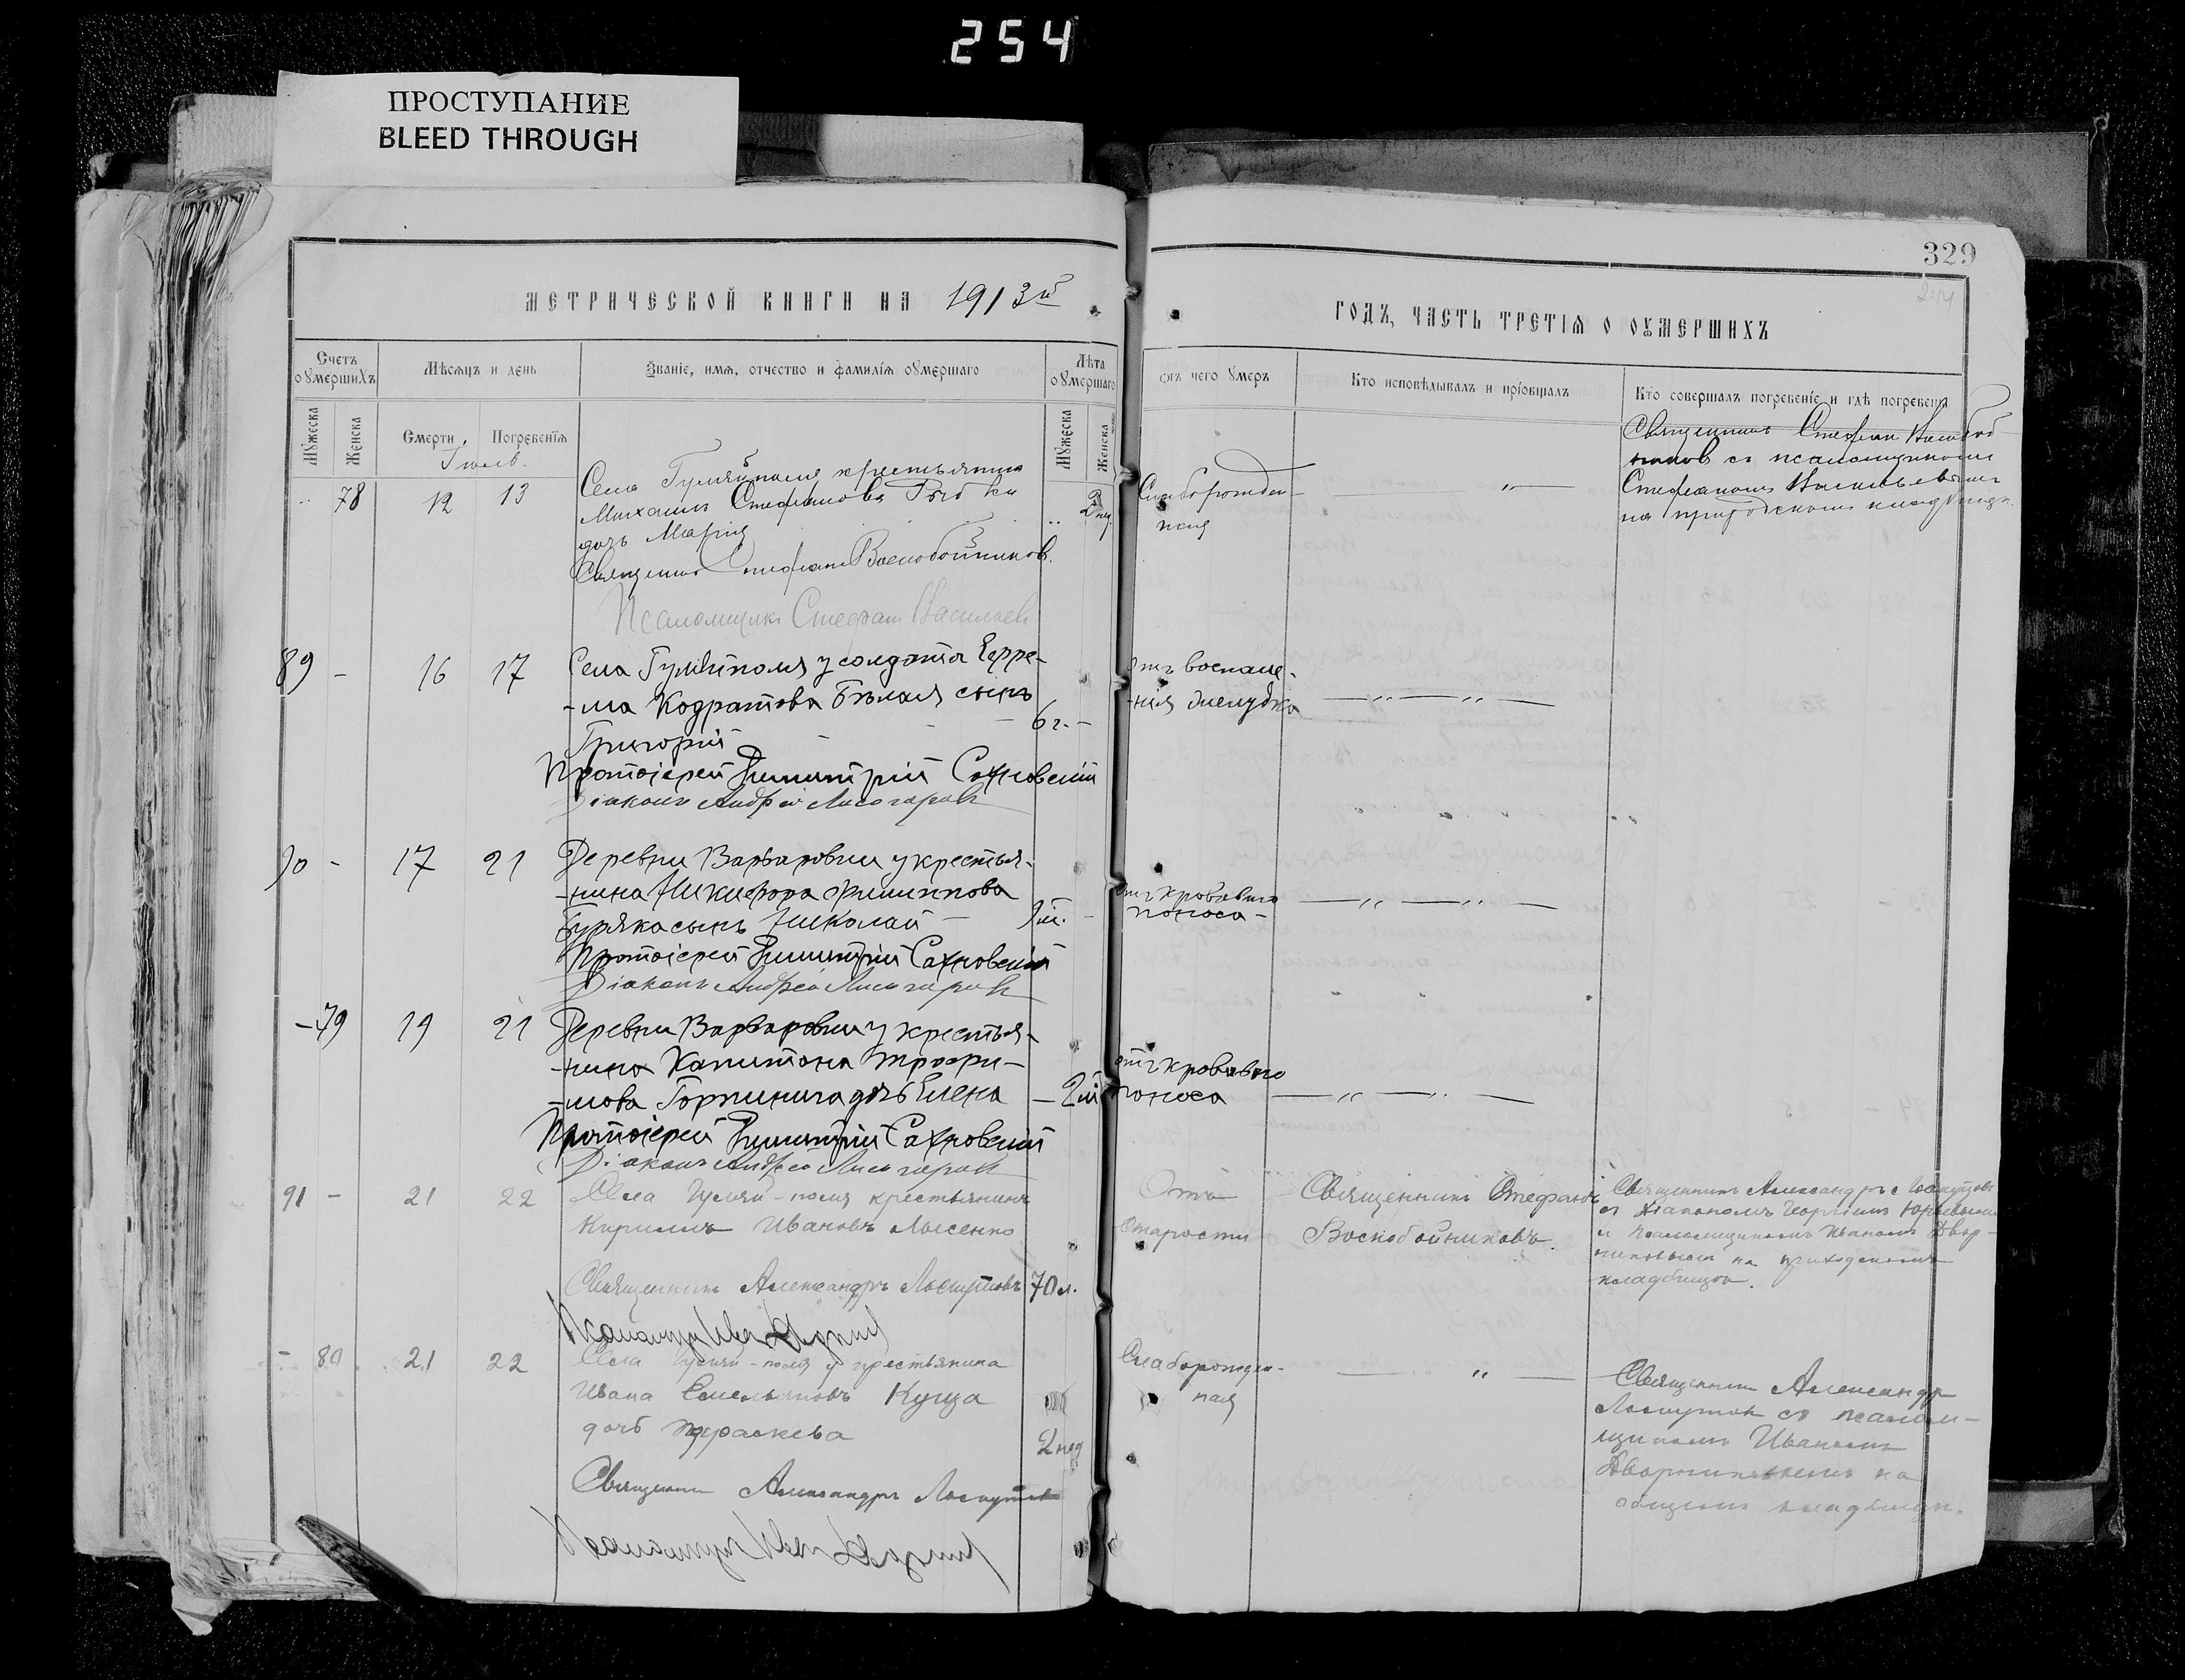 254
ПРОСТУПАНИЕ
BLEED THROUGH
МЕТРИЧЕСКОЙ КНИГИ НА 1913й
Счетъ оумершихъ
Мѣсяцъ и день
Званіе, имя, отчество и фамилія оумершаго
Лѣта оумершаго
Мужеска
Женска
Смерти
Погребенія
Мужеска
Женска
Іюль.
78 12 13 Села Гуляйполя крестьянина
Михаила Стефанова Рыбки
дочь Марія
2 нед.
Священникъ Стефанъ Воскобойниковъ.
Псаломщикъ Стефанъ Васильевъ
89 - 16 17 Села Гуляйполя у солдата Ефре-
-ма Кодратова Бѣлая сынъ
Григорій - - - 6 г. -
Протоіерей Димитрій Сахновскій
Діаконъ Андрей Лисогоровъ
90 - 17 21 Деревни Варваровки у крестья-
-нина Никифора Филиппова
Буряка сынъ Николай -
Протоіерей Димитрій Сахновскій
Діаконъ Андрей Лисогоровъ
- 79 19 21 Деревни Варваровки у крестья-
-нина Капитона Трофи-
-мова Горпинича дочь Елена - 2 м
Протоіерей Димитрій Сахновскій
Діаконъ Андрей Лисогоровъ
91 - 21 22 Села Гуляй-поля крестьянинъ
Кириллъ Ивановъ Лысенко
Священникъ Александръ Лоскутовъ 70 л.
- 80 21 22 Села Гуляй-поля у крестьянина
Ивана Емельяновъ Куща
дочь Параскева
2 нед
Священникъ Александръ Лоскутовъ
329
ГОДЪ, ЧАСТЬ ТРЕТІЯ О ОУМЕРШИХЪ
Отъ чего умеръ
Кто исповѣдывалъ и пріобщалъ
Кто совершалъ погребеніе и гдѣ погребены
Священникъ Стефанъ Воскобой
никовъ съ псаломщикомъ
Стефаномъ Васильевымъ
на приходскомъ кладбищѣ.
Слаборожден-
ная
— „ —
отъ воспале-
-нія желудка
— „ — „ —
отъ кроваваго
поноса -
— „ — „ —
отъ кроваваго
поноса
— „ — „ —
Отъ
старости
Священникъ Стефанъ
Воскобойниковъ.
Священникъ Александръ Лоскутовъ
съ діакономъ Георгіемъ
и псаломщикомъ Иваномъ Двор-
никовымъ на приходскомъ
кладбищѣ.
Слаборожден-
ная
— „ —
Священникъ Александръ
Лоскутовъ съ псалом-
щикомъ Иваномъ
Дворниковымъ на
общемъ кладбищѣ.